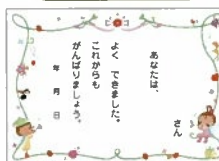 さん
あなたは、
よく できました。
これからも
がんばりましょう。
年 月 日